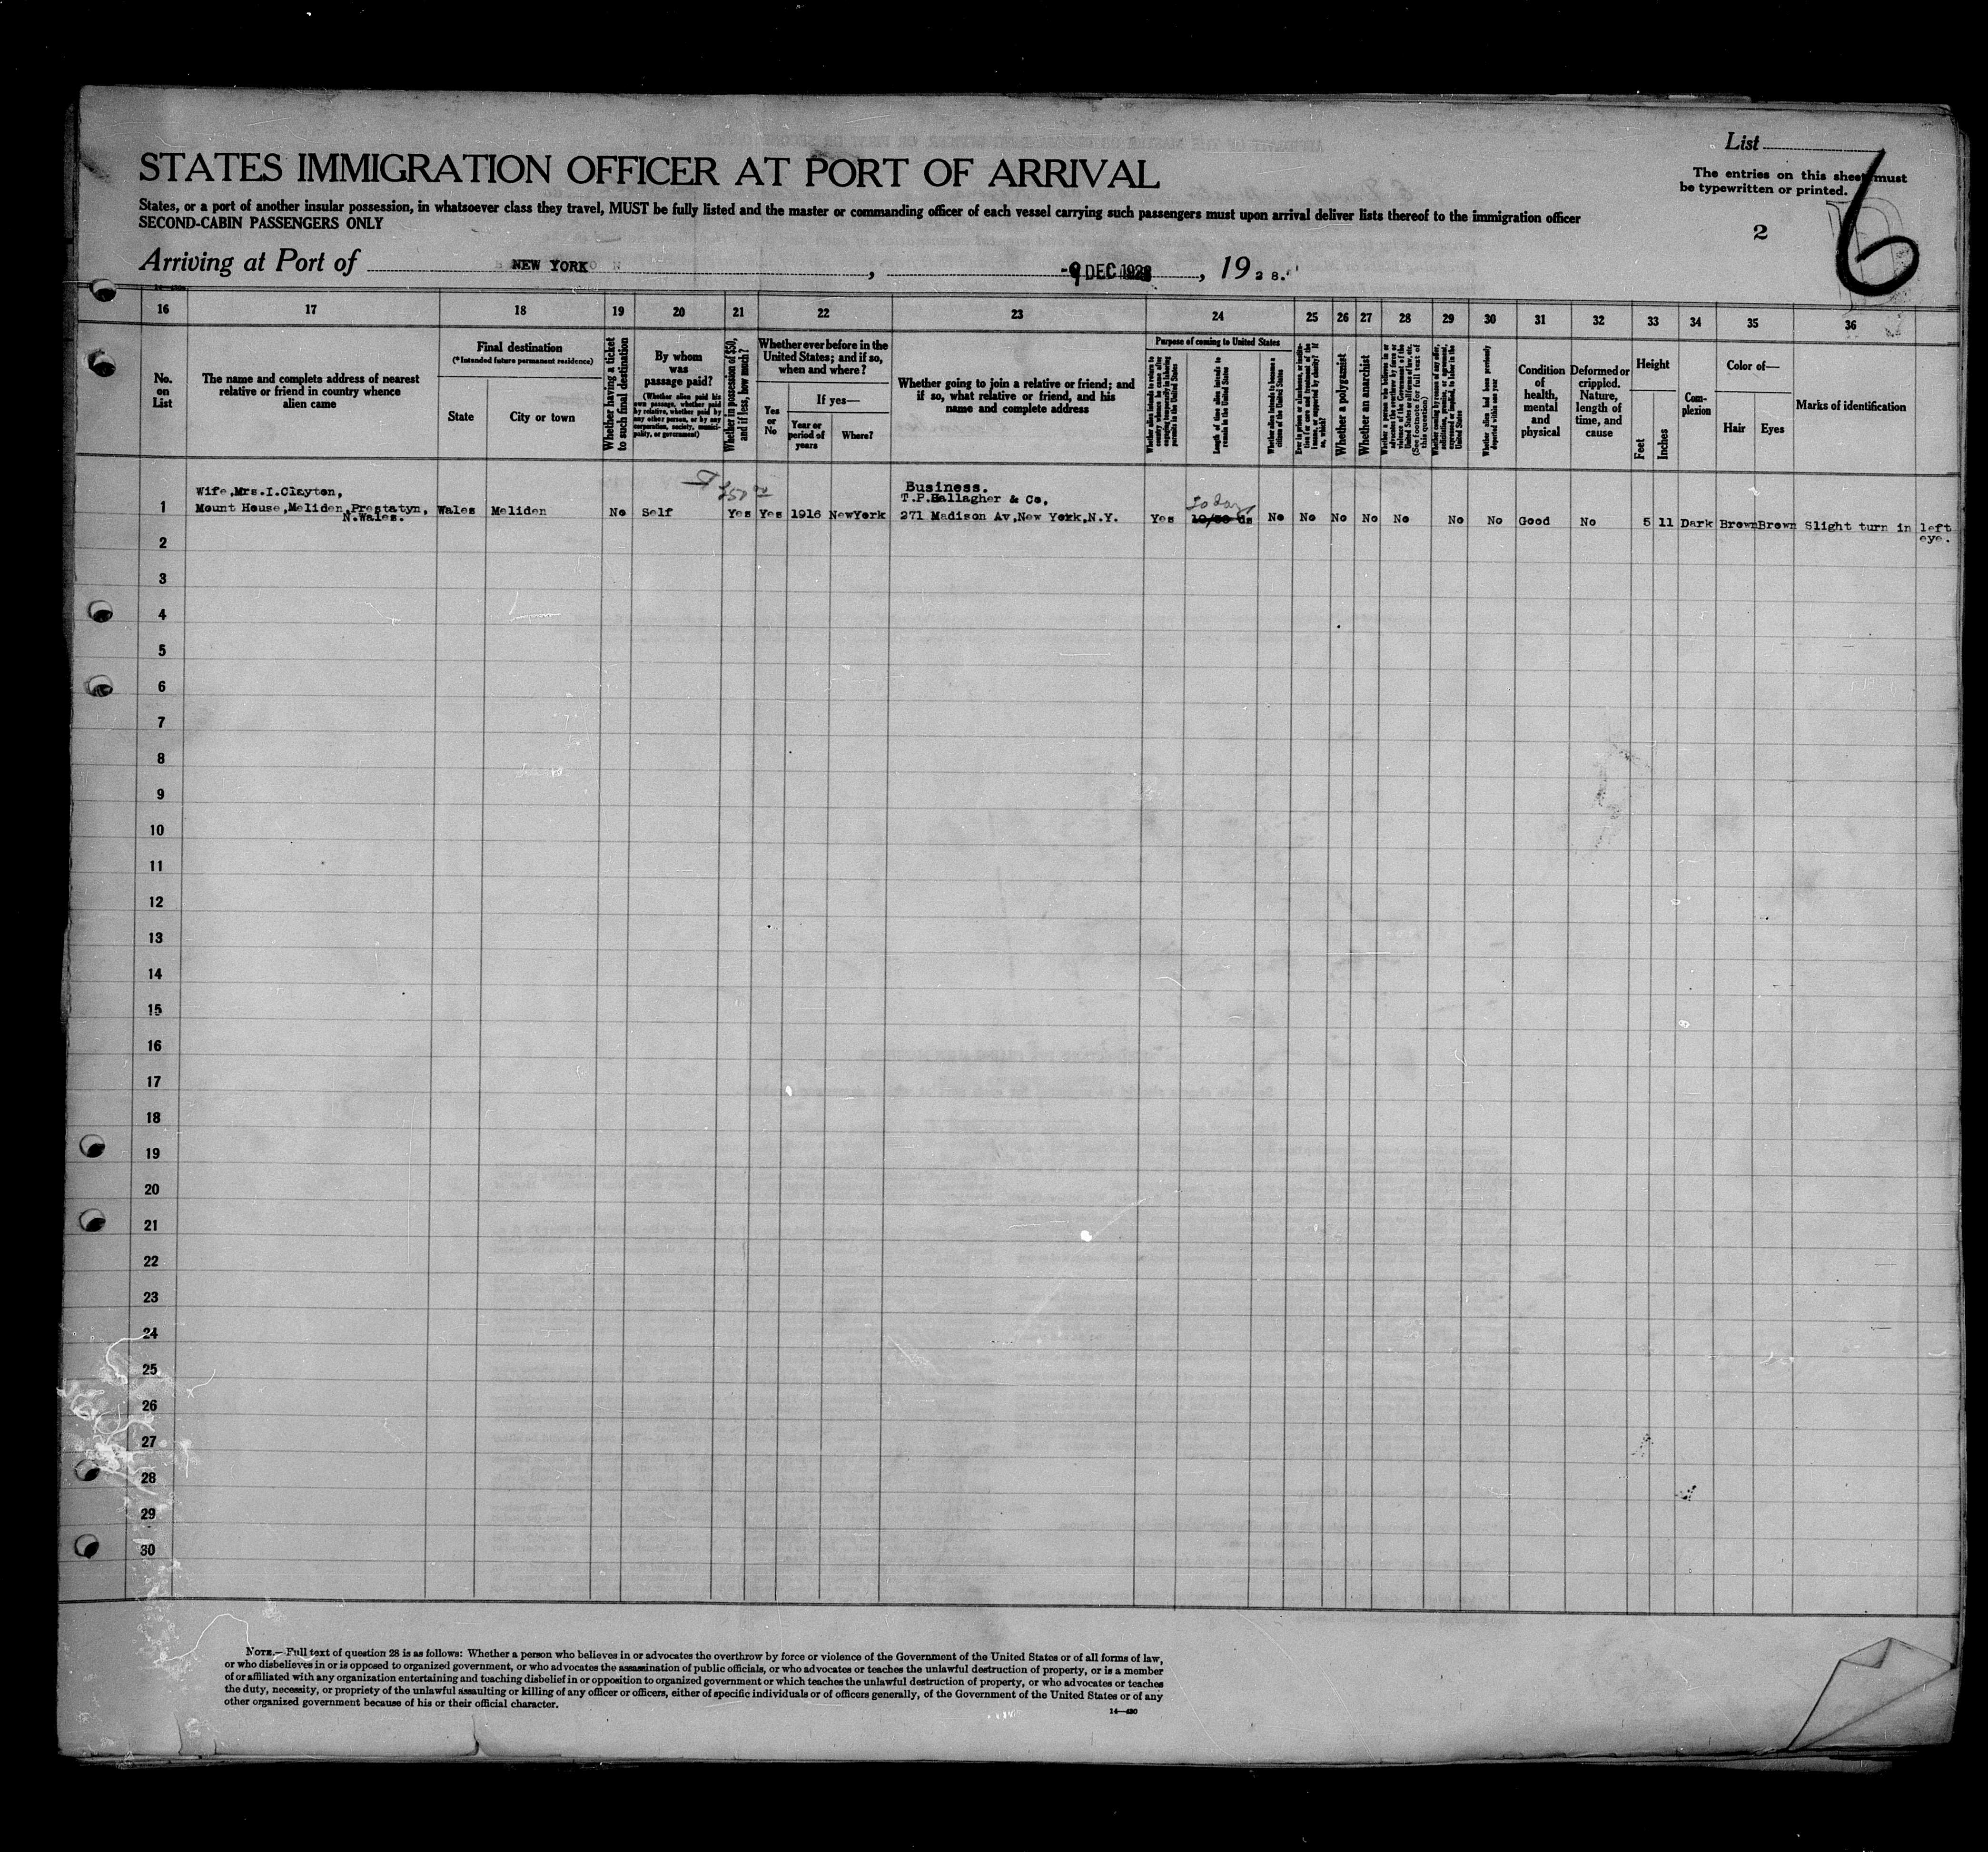 List
The entries on this sheet must
be typewritten or printed.
6
2
STATES IMMIGRATION OFFICER AT PORT OF ARRIVAL
States, or a port of another insular possession, in whatsoever class they travel, MUST be fully listed and the master or commanding officer of each vessel carrying such passengers must upon arrival deliver lists thereof to the immigration officer
SECOND-CABIN PASSENGERS ONLY
Arriving at Port of NEW YORK , -9 DEC 1928 , 19 28.
16 17 18 19 20 21 22 23 24 25 26 27 28 29 30 31 32 33 34 35 36
No. on List
The name and complete address of nearest
relative or friend in country whence
alien came
Final destination
(*Intended future permanent residence)
State
City or town
Whether having a ticket
to such final destination
By whom
was
passage paid?
(Whether alien paid his
own passage, whether paid
by relative, whether paid by
any other person, or by any
corporation, society, munici-
pality, or government)
Whether in possession of $50,
and if less, how much?
Whether ever before in the
United States; and if so,
when and where?
Yes
or
No
If yes—
Year or
period of
years
Where?
Whether going to join a relative or friend; and
if so, what relative or friend, and his
name and complete address
Purpose of coming to United States
Whether alien intends to return to
country whence he came after
engaging temporarily in laboring
pursuits in the United States
Length of time alien intends to
remain in the United States
Whether alien intends to become a
citizen of the United States
Ever in prison or almshouse, or institu-
tion for care and treatment of the
insane, or supported by charity? If
so, which?
Whether a polygamist
Whether an anarchist
Whether a person who believes in or
advocates the overthrow by force or
violence of the Government of the
United States or all forms of law, etc.
(See footnote for full text of
this question)
Whether coming by reason of any offer,
solicitation, promise, or agreement,
expressed or implied, to labor in the
United States
Whether alien had been previously
deported within one year
Condition
of
health,
mental
and
physical
Deformed or
crippled.
Nature,
length of
time, and
cause
Height
Feet
Inches
Com-
plexion
Color of—
Hair
Eyes
Marks of identification
Wife,Mrs.I.Clayton,
1 Mount House,Meliden,Prestatyn, Wales Meliden No Self Yes Yes 1916 NewYork
N.Wales.
Business.
T.P.Gallagher & Co,
271 Madison Av,New York,N.Y. Yes No No No No No No No Good No 5 11 Dark Brown Brown Slight turn in left
eye.
2
3
4
5
6
7
8
9
10
11
12
13
14
15
16
17
18
19
20
21
22
23
24
25
26
27
28
29
30
NOTE.—Full text of question 28 is as follows: Whether a person who believes in or advocates the overthrow by force or violence of the Government of the United States or of all forms of law,
or who disbelieves in or is opposed to organized government, or who advocates the assassination of public officials, or who advocates or teaches the unlawful destruction of property, or is a member
of or affiliated with any organization entertaining and teaching disbelief in or opposition to organized government or which teaches the unlawful destruction of property, or who advocates or teaches
the duty, necessity, or propriety of the unlawful assaulting or killing of any officer or officers, either of specific individuals or of officers generally, of the Government of the United States or of any
other organized government because of his or their official character.
14—430